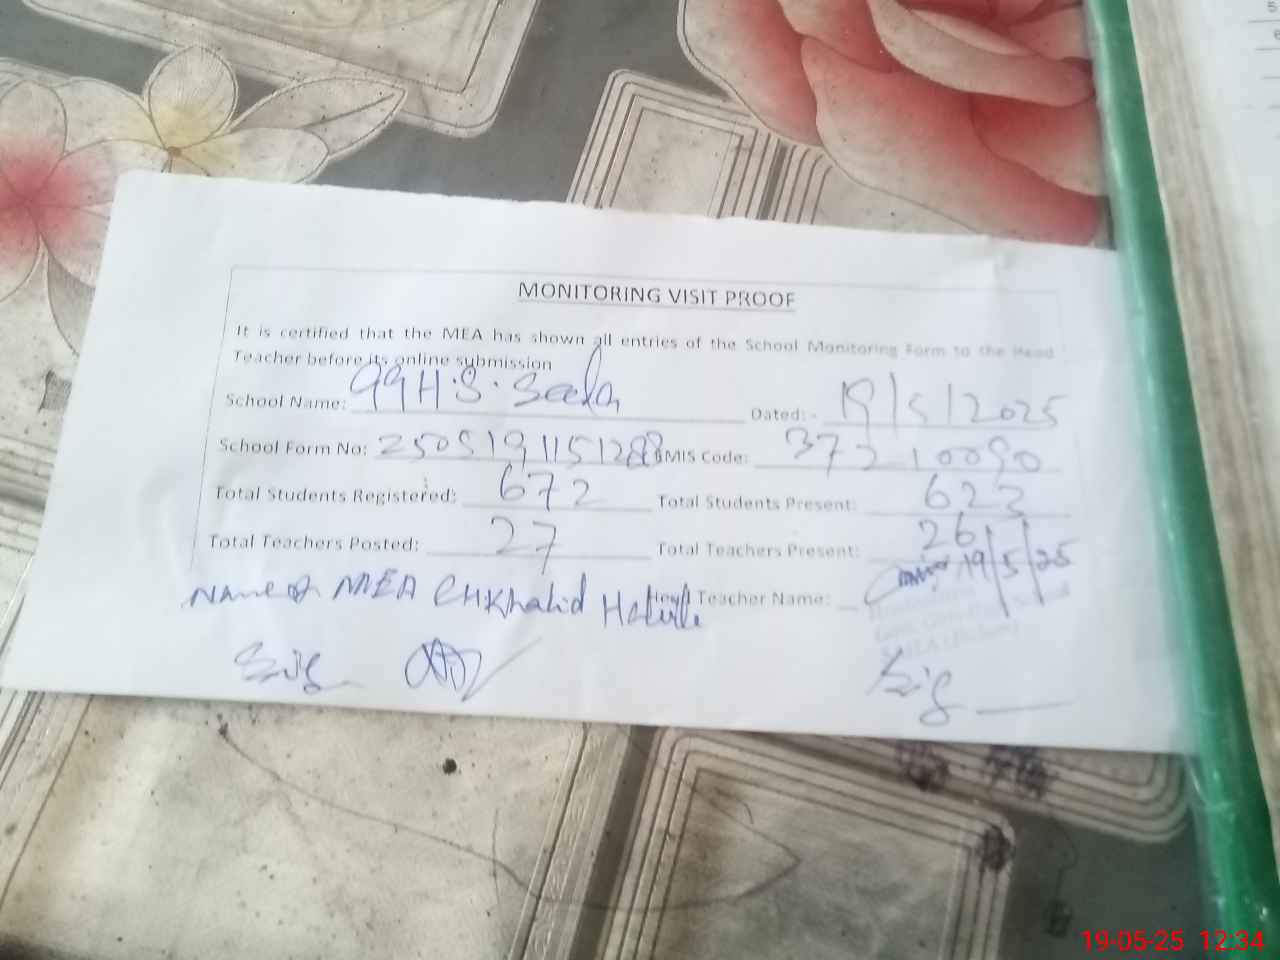 MONITORING VISIT PROOF
It is certified that the MEA has shown all entries of the School Monitoring Form to the Head
Teacher before its online submission
School Name: GGH.S. Seela Dated:- 19/5/2025
School Form No: 25051911512 EMIS Code: 37210090
Total Students Registered: 672 Total Students Present: 623
Total Teachers Posted: 27 Total Teachers Present: 26
19/5/25
Name of MEA CH Khalid Head Teacher Name:
Sig Sig
19-05-25 12:34